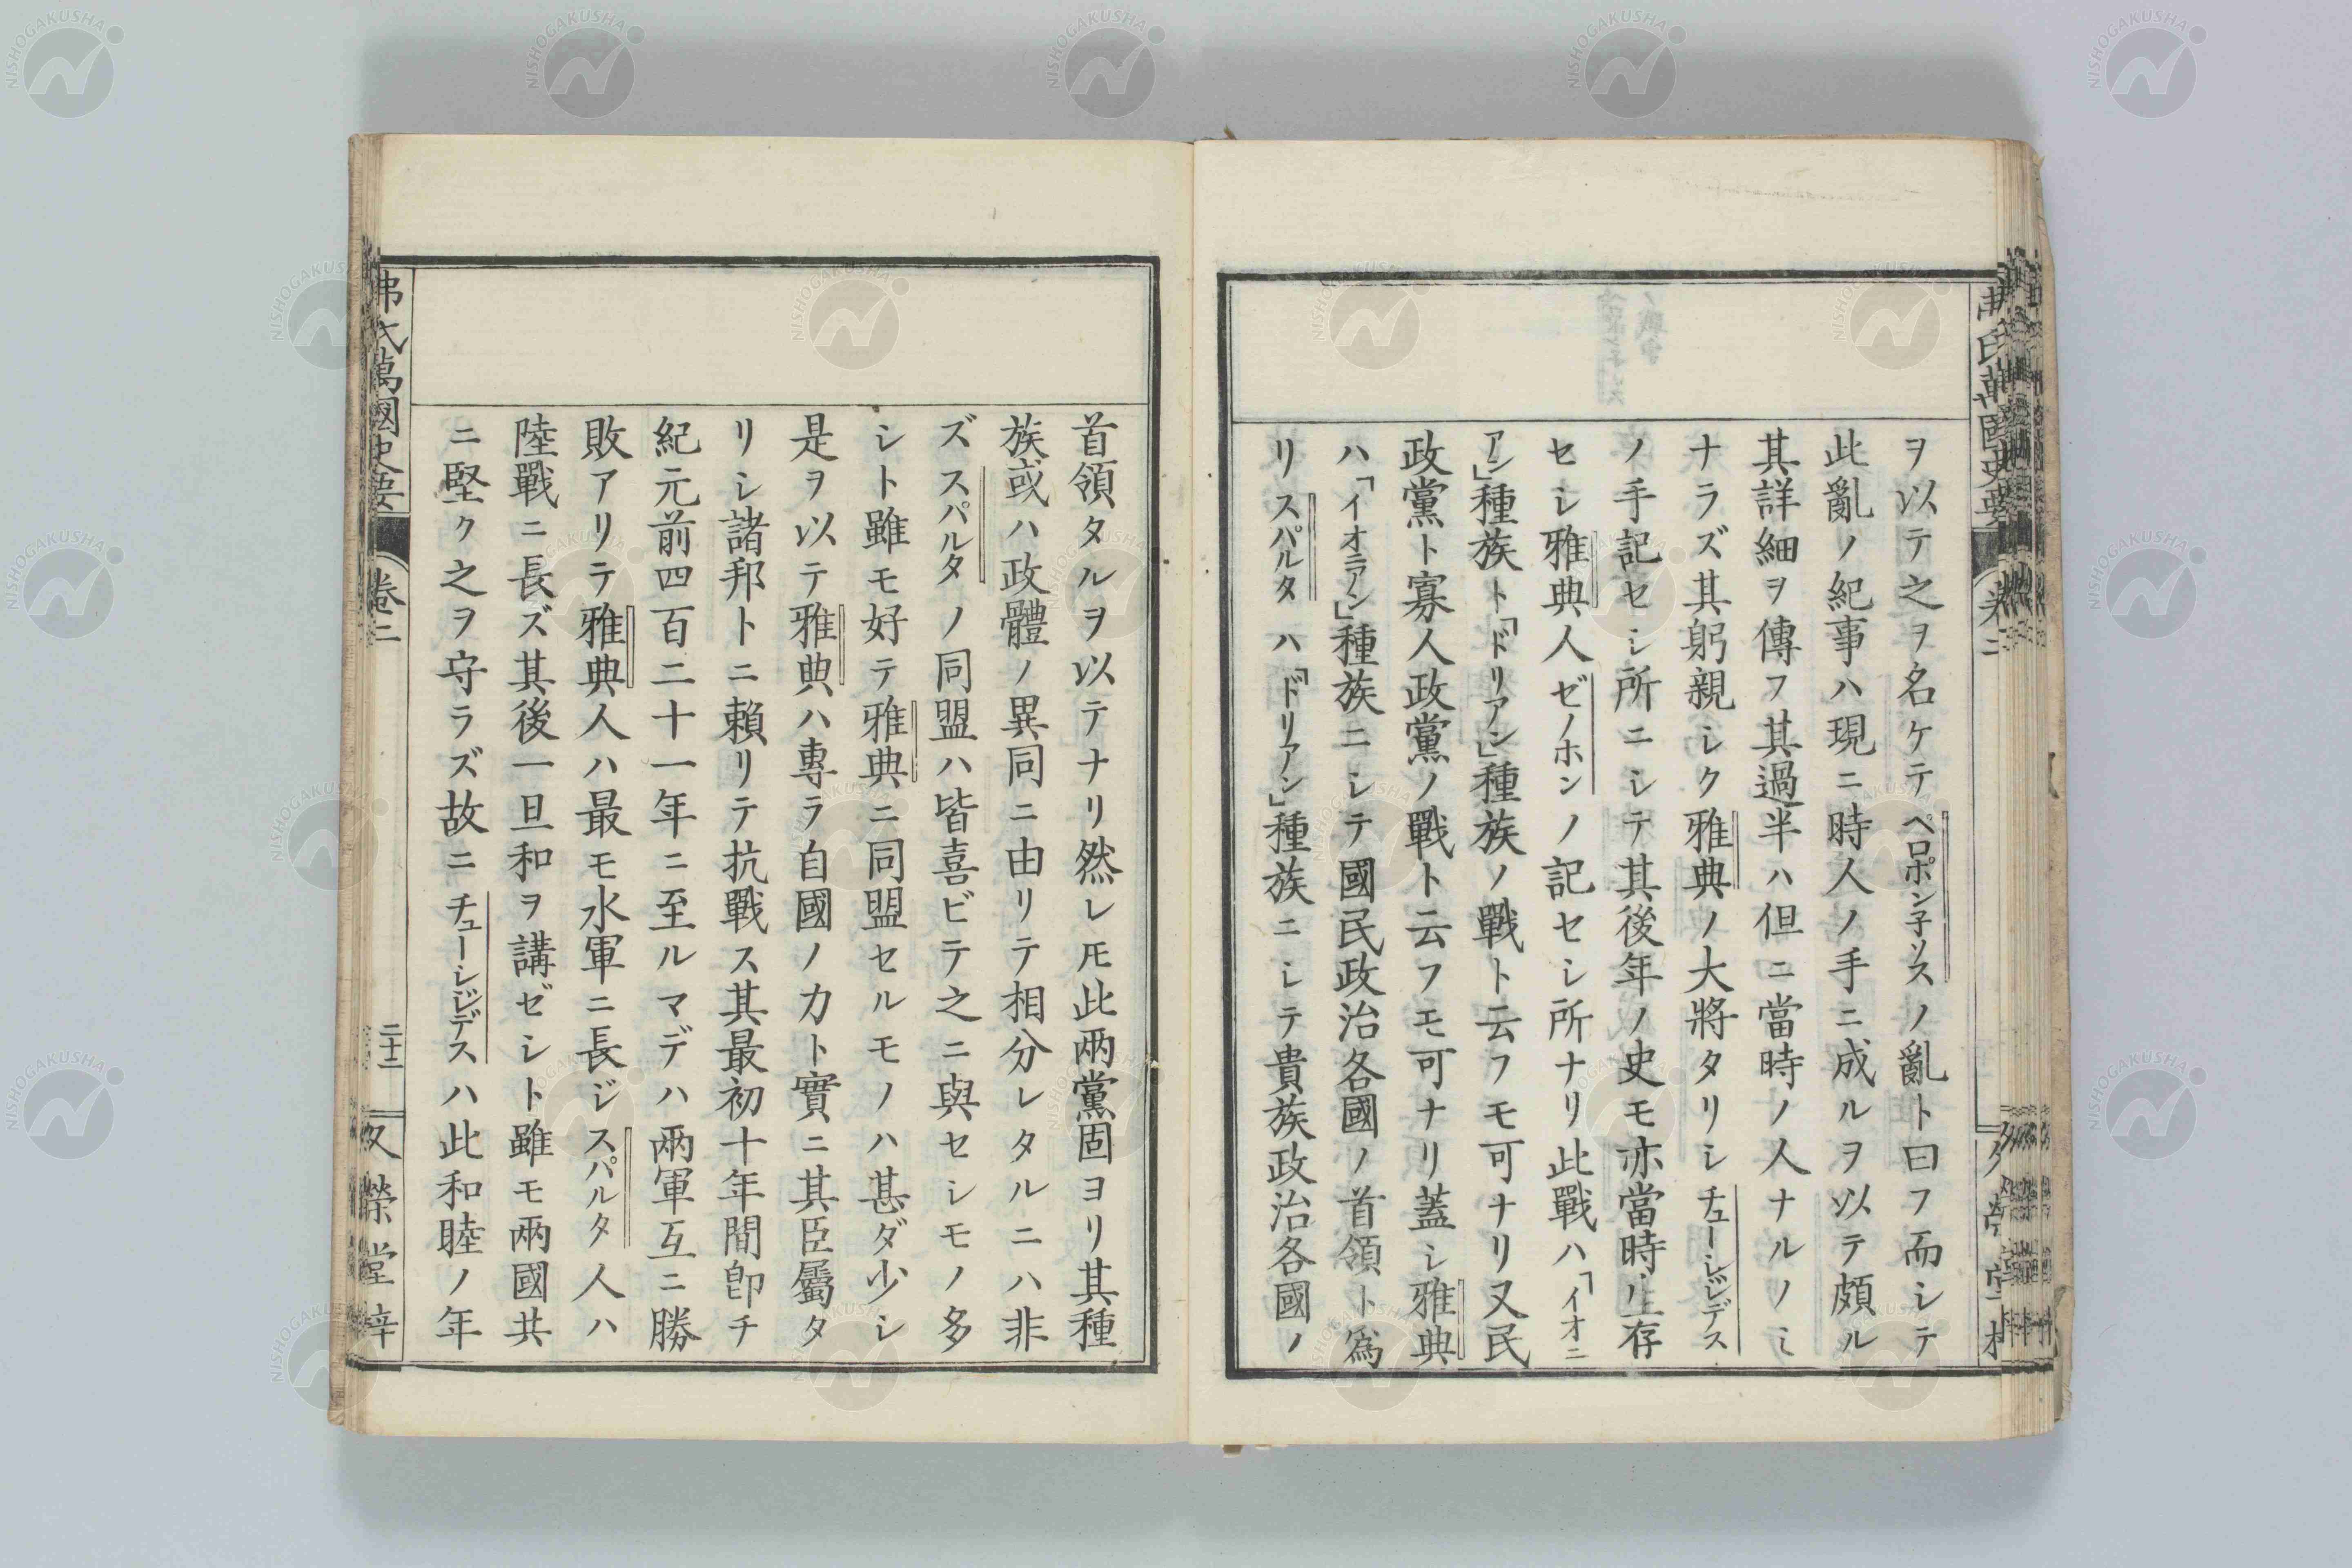 ヲ以テ之ヲ名ケテペロポン子ソスノ亂ト曰フ而シテ
此亂ノ紀事ハ現ニ時人ノ手ニ成ルヲ以テ頗ル
其詳細ヲ傳フ其過半ハ但ニ當時ノ人ナルノミ
ナラズ其躬親シク雅典ノ大將タリシチューシジデス
ノ手記セシ所ニシテ其後年ノ史モ亦當時ニ生存
セシ雅典人ゼノホンノ記セシ所ナリ此戰ハ「イオニ
アン」種族ト「ドリアン」種族ノ戰ト云フモ可ナリ又民
政黨ト寡人政黨ノ戰ト云フモ可ナリ蓋シ雅典
ハ「イオニアン」種族ニシテ國民政治各國ノ首領ト爲
リスパルタハ「ドリアン」種族ニシテ貴族政治各國ノ
首領タルヲ以テナリ然レ𪜈此兩黨固ヨリ其種
族或ハ政體ノ異同ニ由リテ相分レタルニハ非
ズスパルタノ同盟ハ皆喜ビテ之ニ與セシモノ多
シト雖モ好テ雅典ニ同盟セルモノハ甚ダ少シ
是ヲ以テ雅典ハ專ラ自國ノ力ト實ニ其臣屬タ
リシ諸邦トニ賴リテ抗戰ス其最初十年間卽チ
紀元前四百二十一年ニ至ルマデハ兩軍互ニ勝
敗アリテ雅典人ハ最モ水軍ニ長ジスパルタ人ハ
陸戰ニ長ズ其後一旦和ヲ講ゼシト雖モ兩國共
ニ堅ク之ヲ守ラズ故ニチューシジデスハ此和睦ノ年
弗氏萬國史要
卷二
二十二
又榮堂梓
NISHOGAKUSHA